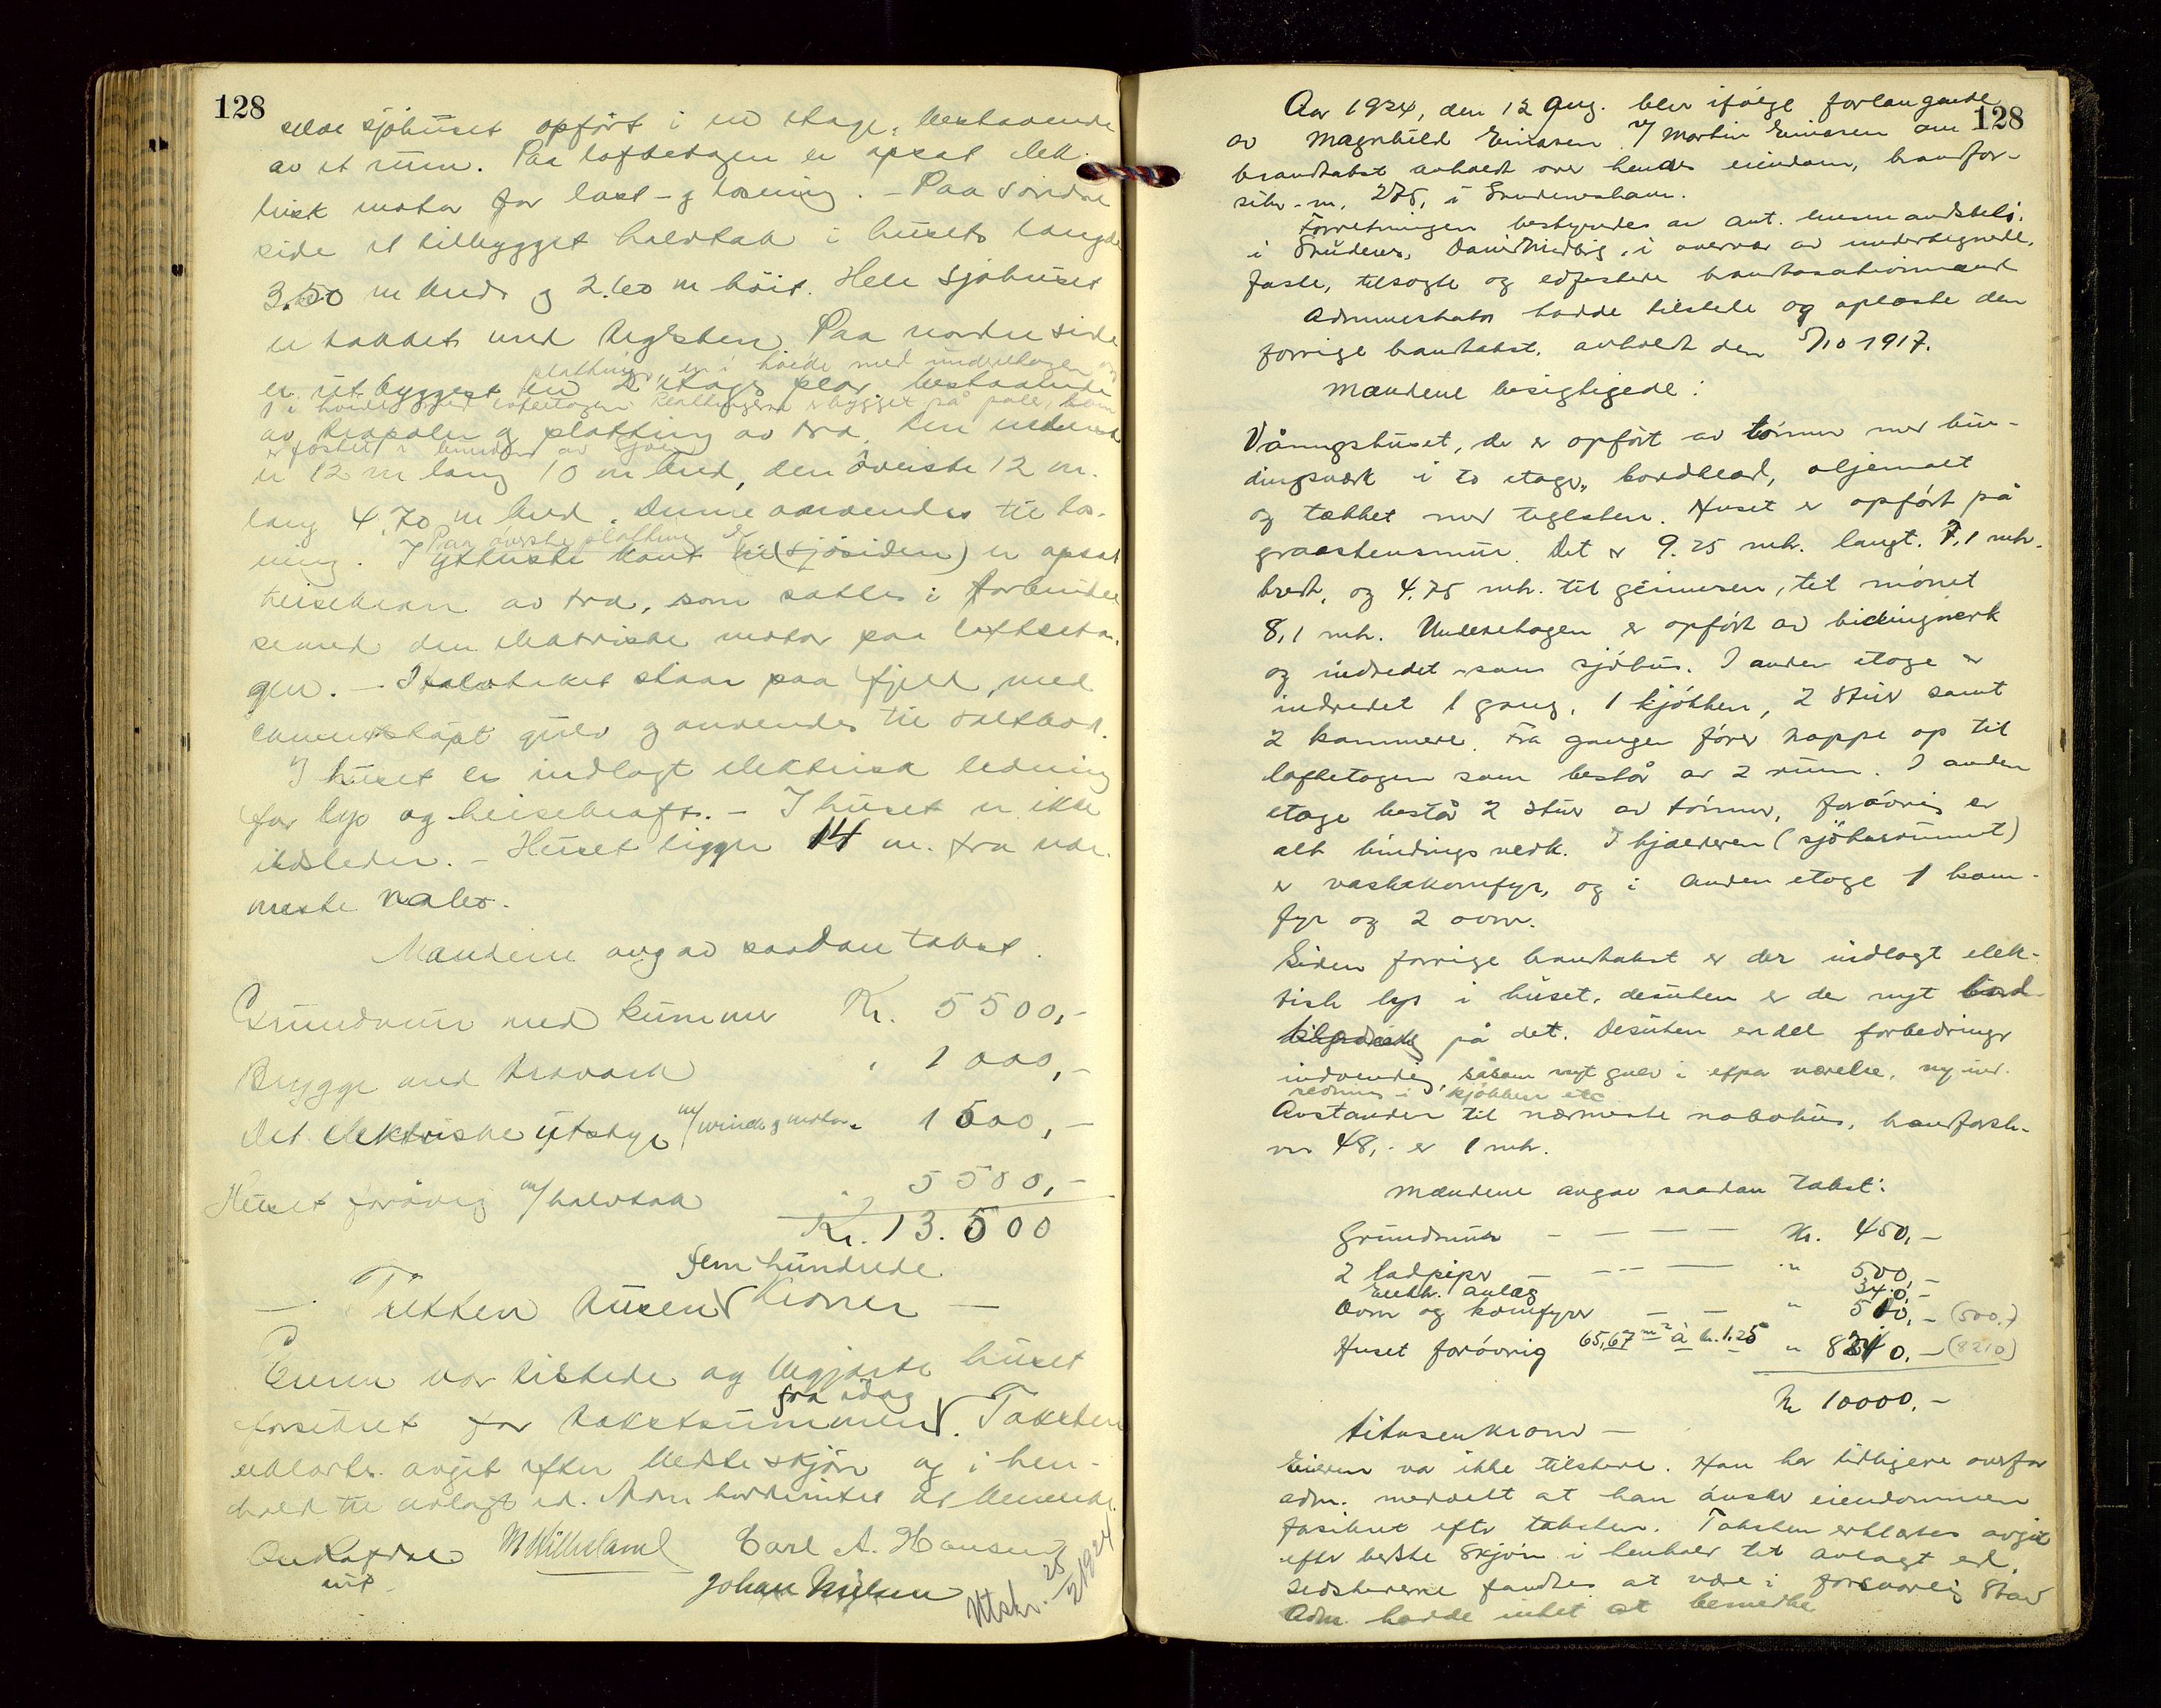 128
selve sjøhuset opført i en etage, bestaaende
av et rum. Paa loftsetagen er opsat elek-
trisk motor for last- og losning. - Paa søndre
side et tilbygget halvtak i husets længde
3.50 m bred og 2.60 m høit. Hele sjøhuset
er tækket med teglsten. Paa nordre side
platningen er i høide med underetagen og
er utbygget en 2 etages plar, bestaaende
i høide med loftsetagen. Platningerne er bygget på pæle, som
av træpæler og platning av træ. Den nederste
er fæstet i bunden av sjøen
er 12 m lang 10 m bred, den øverste 12 m.
lang 4.70 m bred. Denne anvendes til los-
Paa øverste platning
ning. I ytterste kant til (sjøsiden) er opsat
heisekran av træ, som sættes i forbindel
se med den elektriske motor paa loftseta-
gen. - Halvtaket staar paa fjeld, med
cementstøpt gulv og anvendes til saltbod.
I huset er indlagt elektrisk ledning
for lys og heisekraft. - I huset er ikke
ildsteder. - Huset ligger 14 m. fra nær-
meste nabo.
Mændene avgav saadan takst.
Grundmur med kummer Kr. 5500,-
Brygge med træværk " 1000,-
Det elektriske utstyr m/ winch og motor " 1500,-
Huset forøvrig m/ halvtak " 5500,-
Kr. 13.500
fem hundrede
- Tretten tusen kroner -
Eieren var tilstede og begjærte huset
fra idag
forsikret for takstsummen. Taksten
erklærtes avgit efter bedste skjøn og i hen-
hold til avlagt ed. Adm. hadde intet at bemerke.
M Hilleland Carl A. Hansen
Johan Nielsen
Utskr. 25/2 1924
128
Aar 1924, den 12 Aug. blev ifølge forlangende
av Magnhild Einarsen v/ Martin Einarsen om
brandtakst avholdt over hendes eiendom, brandfor-
sikr. nr. 275, i Skudeneshavn.
Forretningen bestyredes av ant. lensmandsbetj.
i Skudenes, David Medbø, i overvær av undertegnede,
faste, tilsagte og edfæstede brandtakstationsmænd
Administrator hadde tilstede og oplæste den
forrige brandtakst, avholdt den 5/10 1917.
Mændene besigtigede:
Våningshuset, der er opført av tømmer med bin-
dingsværk i to etager, bordklædd, oljemalt
og tækket med teglsten. Huset er opført på
graastensmur. Det er 9.25 mtr. langt. 7,1 mtr.
bredt, og 4.75 mtr. til gesimsen, til mønet
8,1 mtr. Underetagen er opført av bindingsverk
og indredet som sjøhus. I anden etage er
indredet 1 gang, 1 kjøkken, 2 stuer samt
2 kammere. Fra gangen fører trappe op til
loftetagen som består av 2 rum. I anden
etage består 2 stuer av tømmer, forøvrig er
alt bindingsverk. I kjælderen (sjøhusrummet)
er vaskekomfyr, og i anden etage 1 kom-
fyr og 2 ovner.
Siden forrige brandtakst er der indlagt elek-
trisk lys i huset, desuten er der nyt bord-
på det. Desuten endel forbedringer
indvendig, såsom nyt gulv i et par værelser, ny ind-
redning i kjøkken etc
Avstanden til nærmeste nabohus, brandforsk-
nr 48, - er 1 mtr.
Mændene avgav saadan takst:
Grundmur - - - - Kr. 450,-
2 ladpiper - - - - " 500,-
Elektr. anlæg 340,-
Ovner og komfyrer - - " 500,- (500,-)
Huset forøvrig 65,67 m2 à kr. 125 " 8210,- (8210)
Kr 10000,-
titusenkroner -
Eieren var ikke tilstede. Han har tidligere overfor
adm. meddelt at han ønsker eiendommen
forsikret efter taksten. Taksten erklæres avgit
efter bedste skjøn i henhold til avlagt ed.
Ildstederne fandtes at være i forsvarlig stand
Adm. hadde intet at bemerke